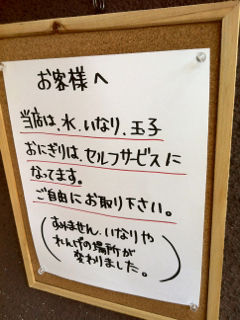 お客様へ
当店は、水、いなり、玉子
おにぎりは、セルフサービスに
なってます。
ご自由にお取り下さい。
(すみません、いなりや
れんげの場所が
変わりました。)